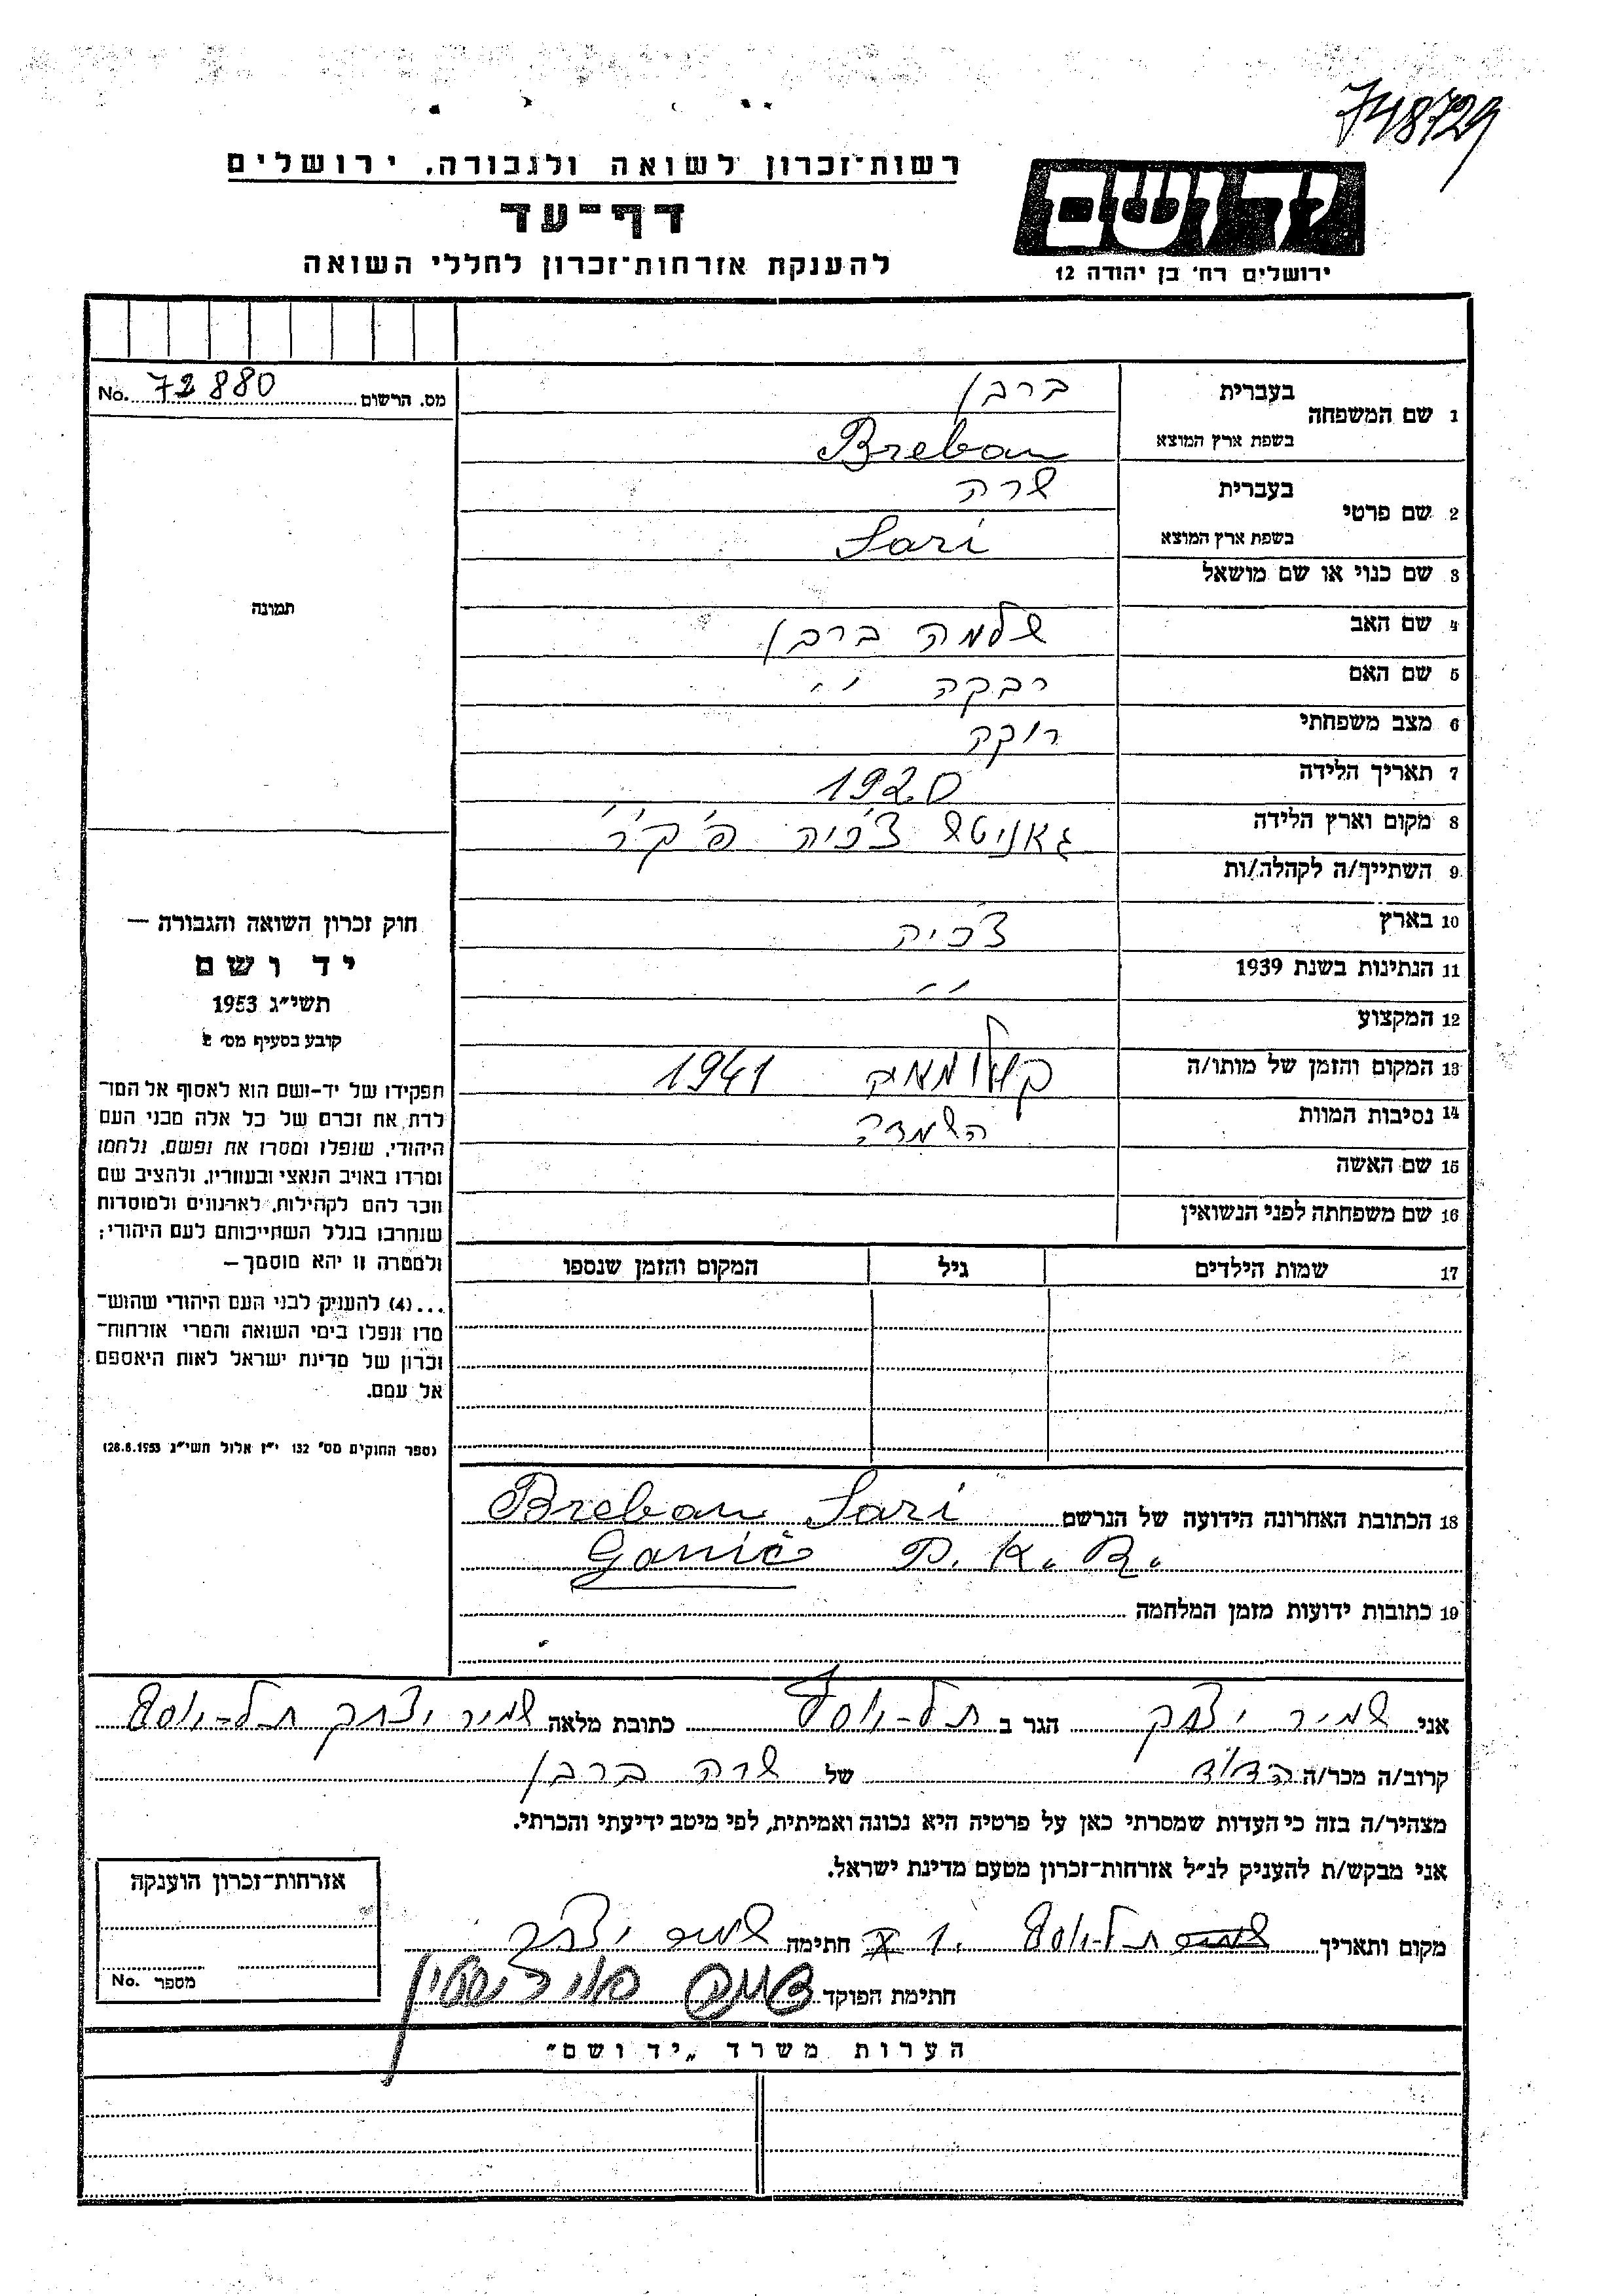 748729
רשות־זכרון לשואה ולגבורה, ירושלים
דף־עד
להענקת אזרחות־זכרון לחללי השואה
יד ושם
ירושלים רח' בן יהודה 12
מס. הרשום No. 72880
תמונה
חוק זכרון השואה והגבורה —
יד ושם
תשי״ג 1953
קובע בסעיף מס' 2
תפקידו של יד-ושם הוא לאסוף אל המו־
לדת את זכרם של כל אלה מבני העם
היהודי, שנפלו ומסרו את נפשם, נלחמו
ומרדו באויב הנאצי ובעוזריו, ולהציב שם
וזכר להם לקהילות, לארגונים ולמוסדות
שנחרבו בגלל השתייכותם לעם היהודי;
ולמטרה זו יהא מוסמך —
...(4) להעניק לבני העם היהודי שהוש־
מדו ונפלו בימי השואה והמרי אזרחות־
זכרון של מדינת ישראל לאות היאספם
אל עמם.
(ספר החוקים מס' 132 י״ז אלול תשי״ג 28.8.1953)
1 שם המשפחה
בעברית ברבן
בשפת ארץ המוצא Breban
2 שם פרטי
בעברית שרה
בשפת ארץ המוצא Sari
3 שם כנוי או שם מושאל
4 שם האב שלמה ברבן
5 שם האם רבקה ״
6 מצב משפחתי רוקק
7 תאריך הלידה 1920
8 מקום וארץ הלידה גאניטש צ'כיה פ'ק'ר'
9 השתייך/ה לקהלה/ות
10 בארץ צ'כיה
11 הנתינות בשנת 1939 ״
12 המקצוע
13 המקום והזמן של מותו/ה 1941
14 נסיבות המוות השמדה
15 שם האשה
16 שם משפחתה לפני הנשואין
17 שמות הילדים גיל המקום והזמן שנספו
18 הכתובת האחרונה הידועה של הנרשם Breban Sari
Ganič P. K. R.
19 כתובות ידועות מזמן המלחמה
אני שמיר יצחק הגר ב תל-יוסף כתובת מלאה שמיר יצחק תל-יוסף
קרוב/ה מכר/ה הדוד של שרה ברבן
מצהיר/ה בזה כי העדות שמסרתי כאן על פרטיה היא נכונה ואמיתית, לפי מיטב ידיעתי והכרתי.
אני מבקש/ת להעניק לנ״ל אזרחות־זכרון מטעם מדינת ישראל.
מקום ותאריך תל-יוסף חתימה שמיר יצחק
חתימת הפוקד
אזרחות־זכרון הוענקה
מספר No.
הערות משרד „יד ושם״